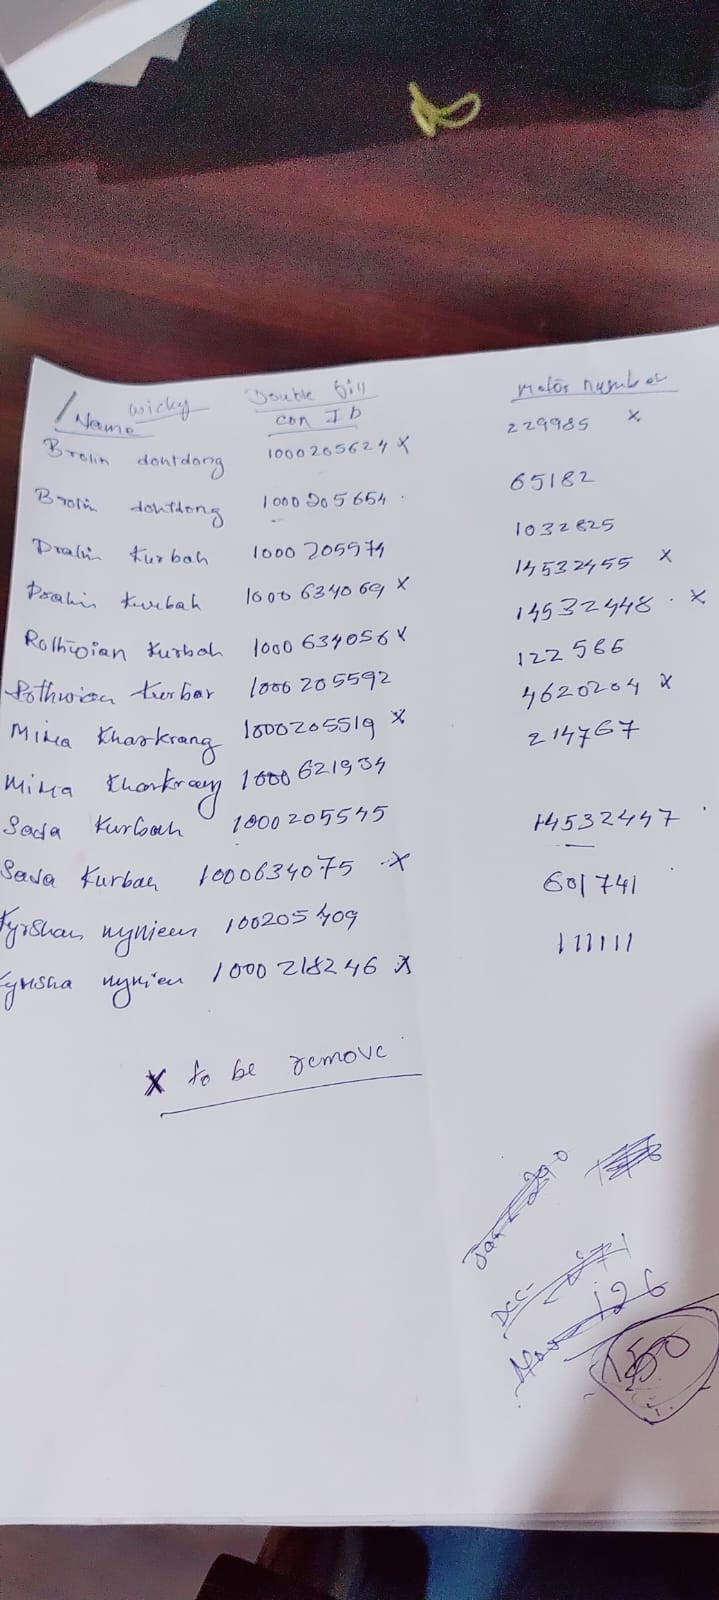 Name Wicky Double bill Meter number
con ID
Brolin dohtdong 1000205624 x 229985 x
Brolin dohtdong 1000205654 65182
Dralin Kurbah 1000205574 1032825
Dralin Kurbah 1000634069 x 14532455 x
Rothwian Kurbah 1000634056 x 14532448 x
Rothwian Kurbar 1000205592 122566
Mina Kharkrang 1000205519 x 4620204 x
Mina Kharkrang 1000621934 214767
Sada Kurbah 1000205545
Sada Kurbah 1000634075 x 14532447
Kyrshan nynien 100205409 601741
nynien 1000218246 x 111111
x to be remove